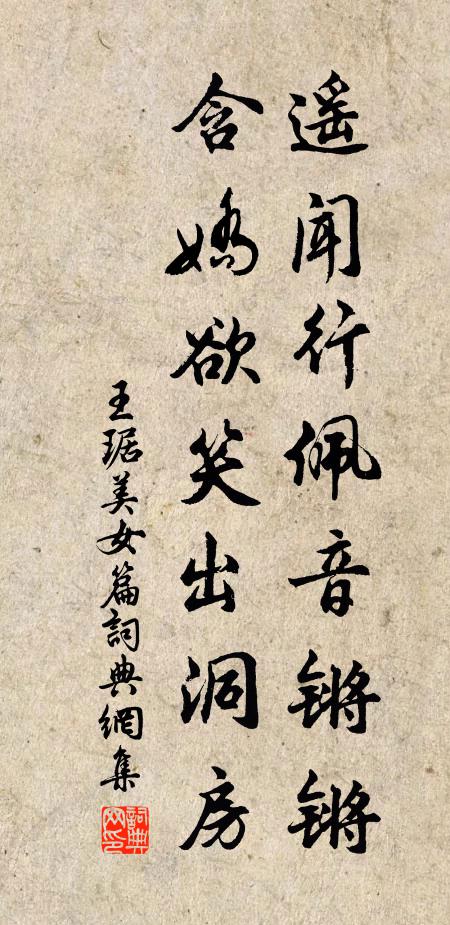 遥闻行佩音锵锵
含嬌欲笑出洞房
王琚美女篇詞典網集
詞典網印